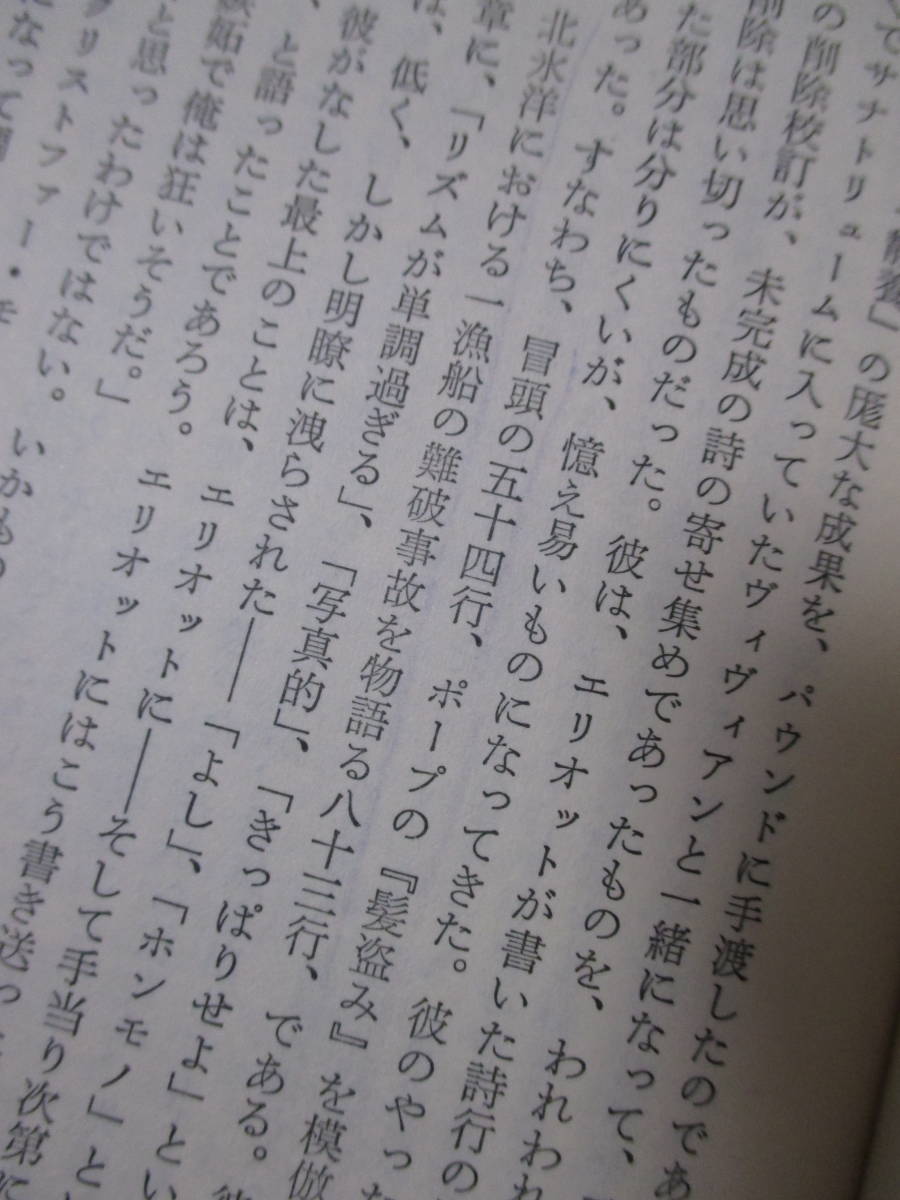 静養」の厖大な成果を、パウンドに手渡したのであ
てサナトリュームに入っていたヴィヴィアンと一緒になって、
の削除校訂が、未完成の詩の寄せ集めであったものを、われわれ
削除は思い切ったものだった。彼は、エリオットが書いた詩行の
た部分は分りにくいが、憶え易いものになってきた。彼のやった
あった。すなわち、冒頭の五十四行、ポープの『髪盗み』を模倣
北氷洋における一漁船の難破事故を物語る八十三行、である。彼
章に、「リズムが単調過ぎる」、「写真的」、「きっぱりせよ」とい
は、低く、しかし明瞭に洩らされた――「よし」、「ホンモノ」と
彼がなした最上のことは、エリオットに――そして手当り次第に
、と語ったことであろう。エリオットにはこう書き送っ
嫉妬で俺は狂いそうだ。」
と思ったわけではない。いかもの
リストファー・モ
になって